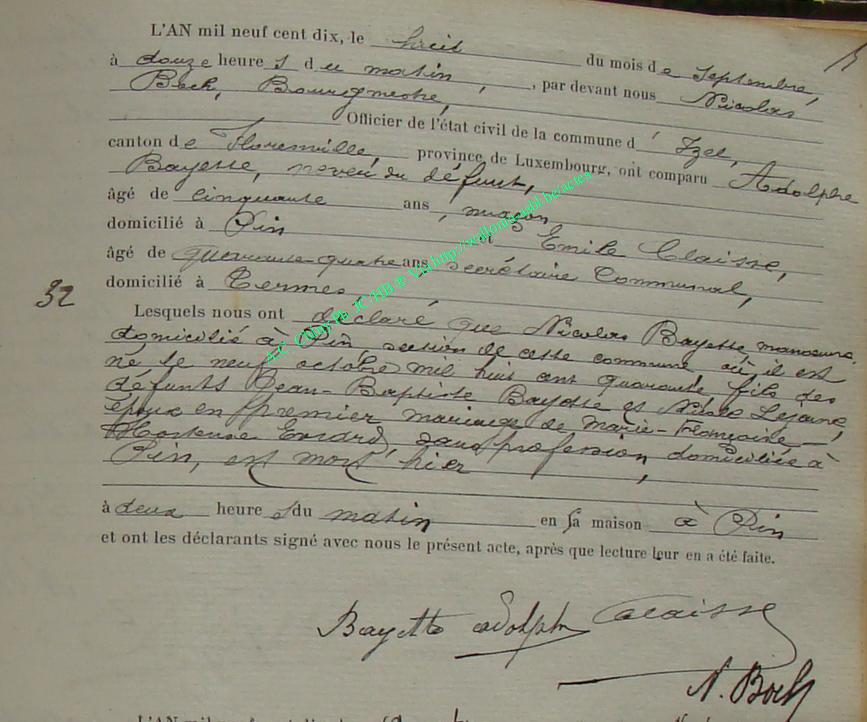 L'AN mil neuf cent dix, le huit du mois de Septembre,
à douze heures du matin, par devant nous Nicolas
Bock, Bourgmestre,
Officier de l'état civil de la commune d'Izel,
canton de Florenville, province de Luxembourg, ont comparu Adolphe
Bayette, neveu du défunt,
âgé de cinquante ans, maçon
domicilié à Pin et Emile Claisse,
âgé de quarante-quatre ans secrétaire Communal,
domicilié à Termes
32
Lesquels nous ont déclaré que Nicolas Bayette, manoeuvre,
domicilié à Pin section de cette commune où il est
né le neuf octobre mil huit cent quarante, fils des
défunts Jean-Baptiste Bayette et Lejeune,
époux en premier mariage de Marie-Françoise-
Hortense Evrard, sans profession domiciliée à
Pin, est mort hier,
à deux heures du matin en sa maison à Pin
et ont les déclarants signé avec nous le présent acte, après que lecture leur en a été faite.
Bayette adolph Claisse
N. Bock
L'AN mil neuf cent dix